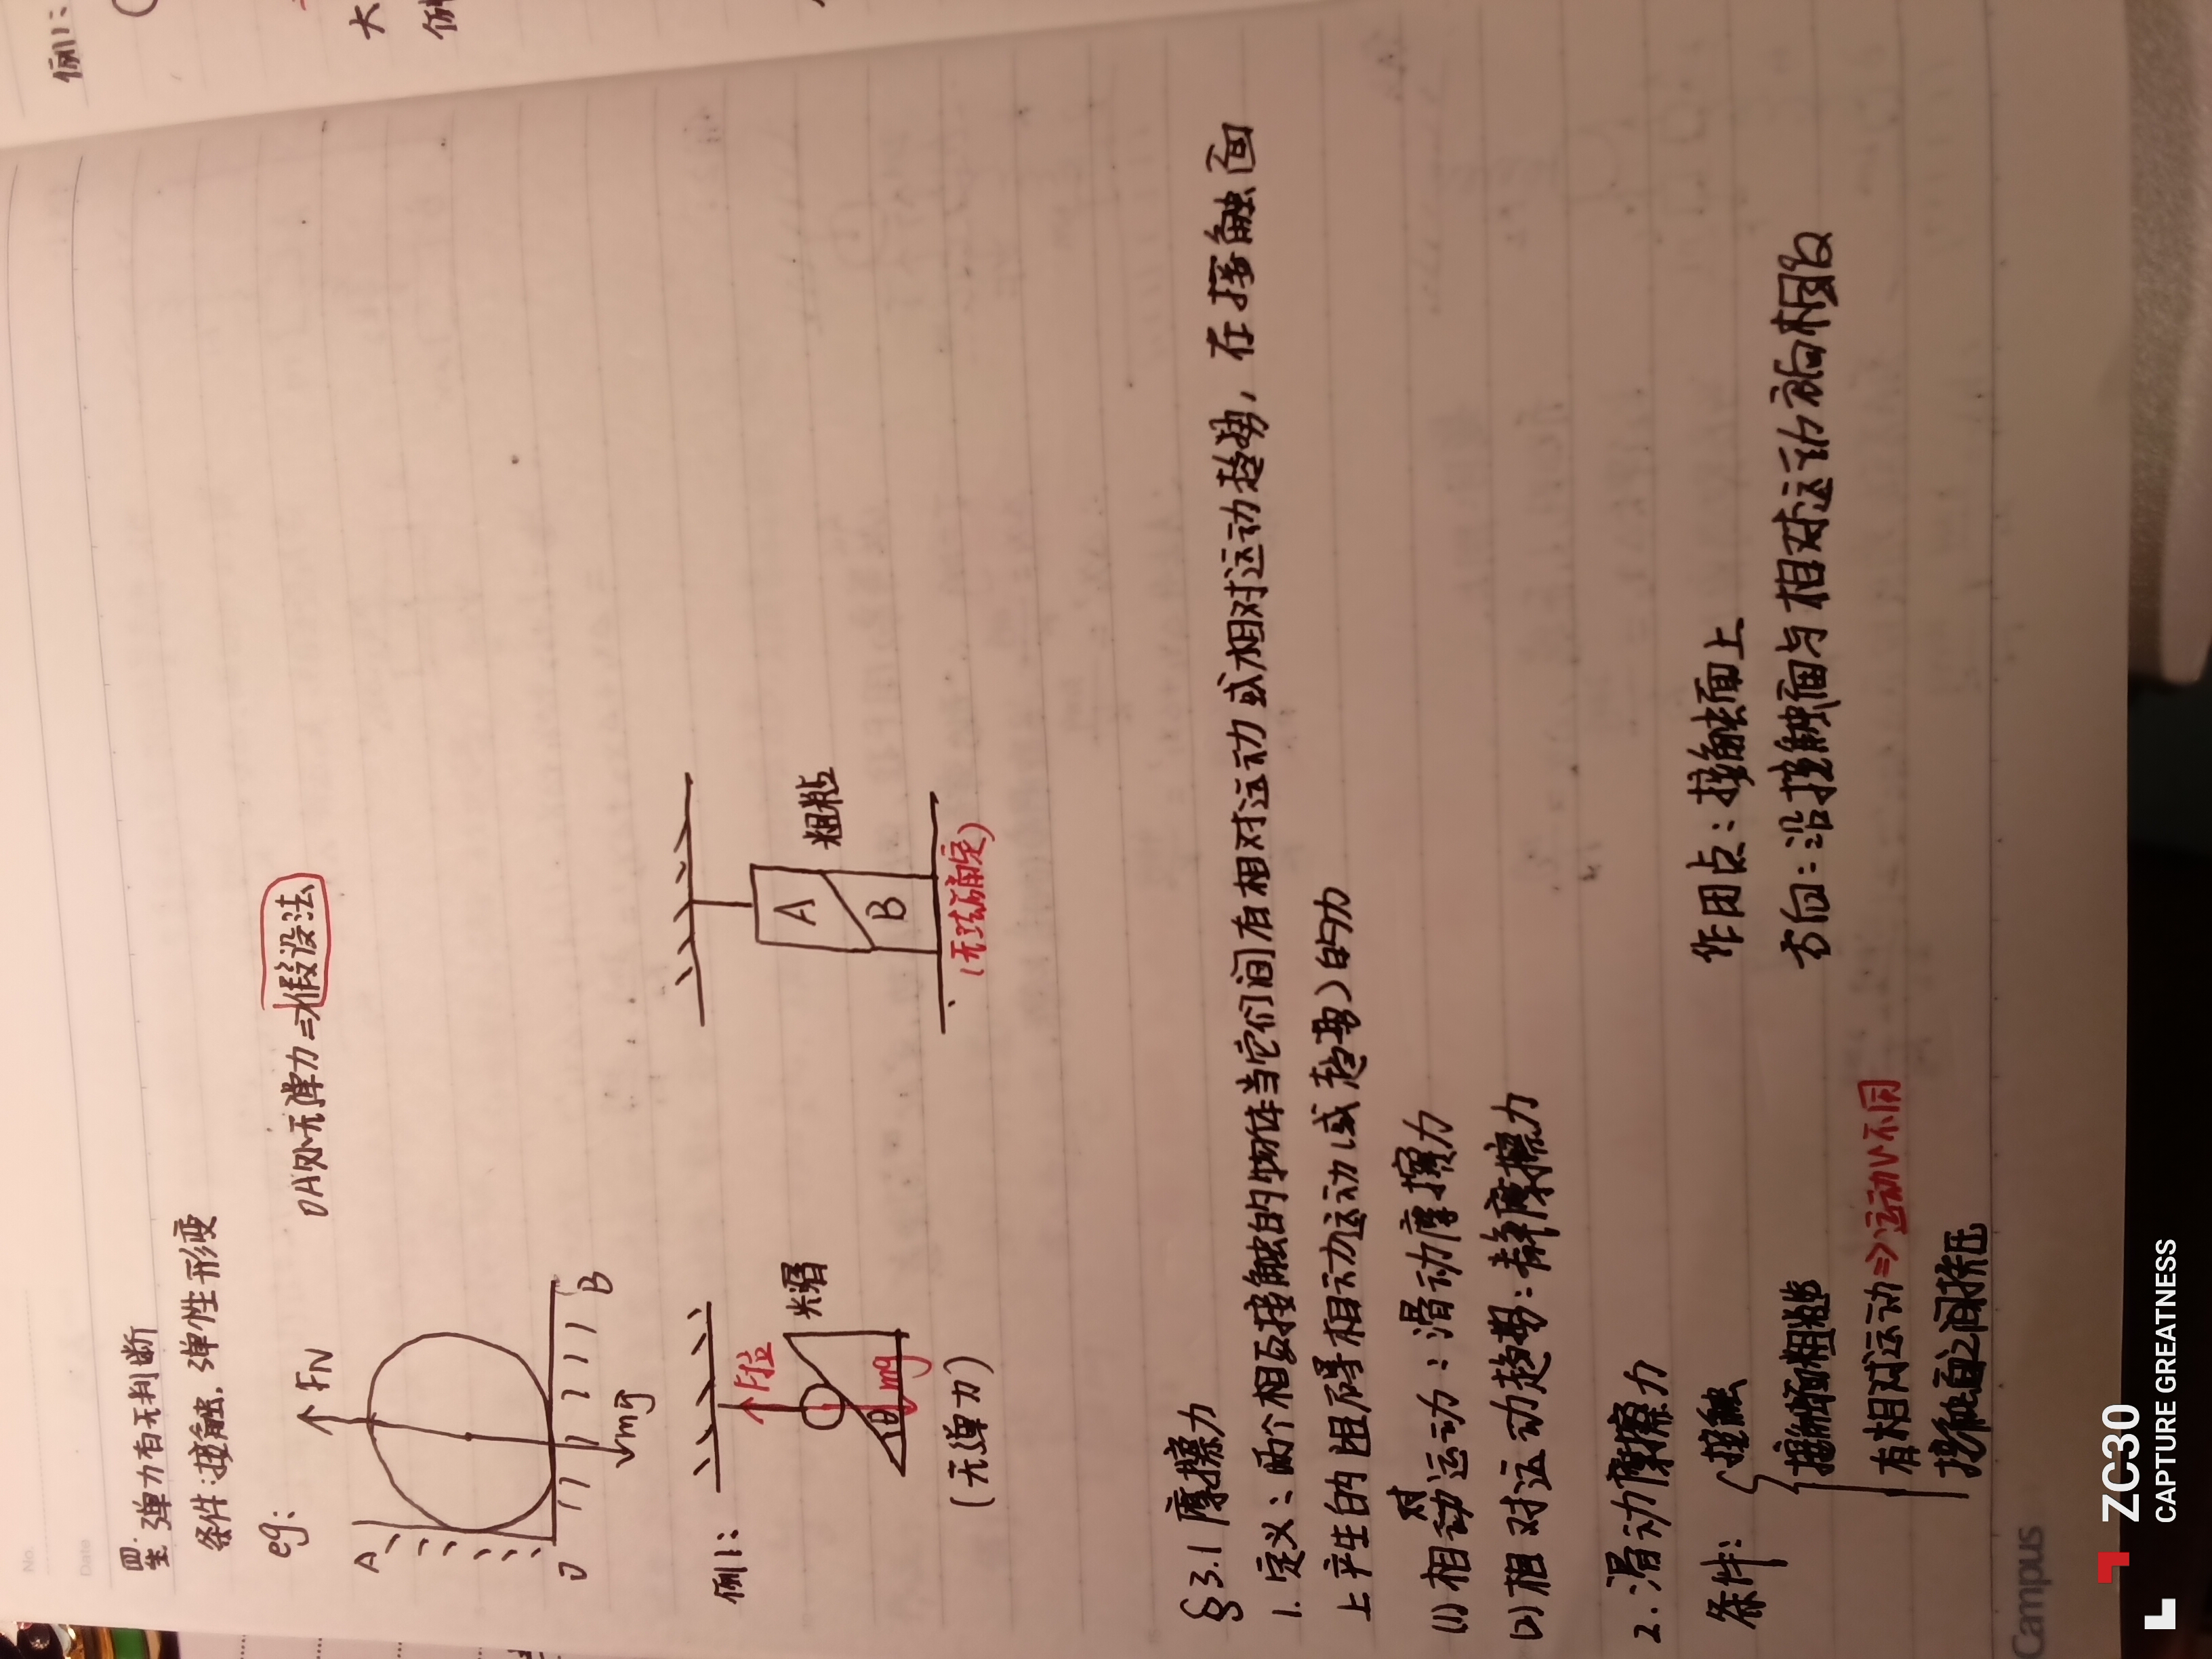 例1:
大
例
No.
Date
四. 弹力有无判断
条件:接触, 弹性形变
eg:
OA处无弹力⇒假设法
FN
A
O
B
mg
例1:
F拉
光滑
θ
mg
(无弹力)
A
B
粗糙
(无法确定)
§3.1 摩擦力
1. 定义: 两个相互接触的物体当它们间有相对运动或相对运动趋势, 在接触面
上产生的阻碍相动运动(或趋势)的力
(1) 相对动运动: 滑动摩擦力
(2) 相对运动趋势: 静摩擦力
2. 滑动摩擦力
条件: 接触
接触面粗糙
有相对运动⇒运动v不同
接触面之间挤压
作用点: 接触面上
方向: 沿接触面与相对运动方向相反
Campus
ZC30
CAPTURE GREATNESS